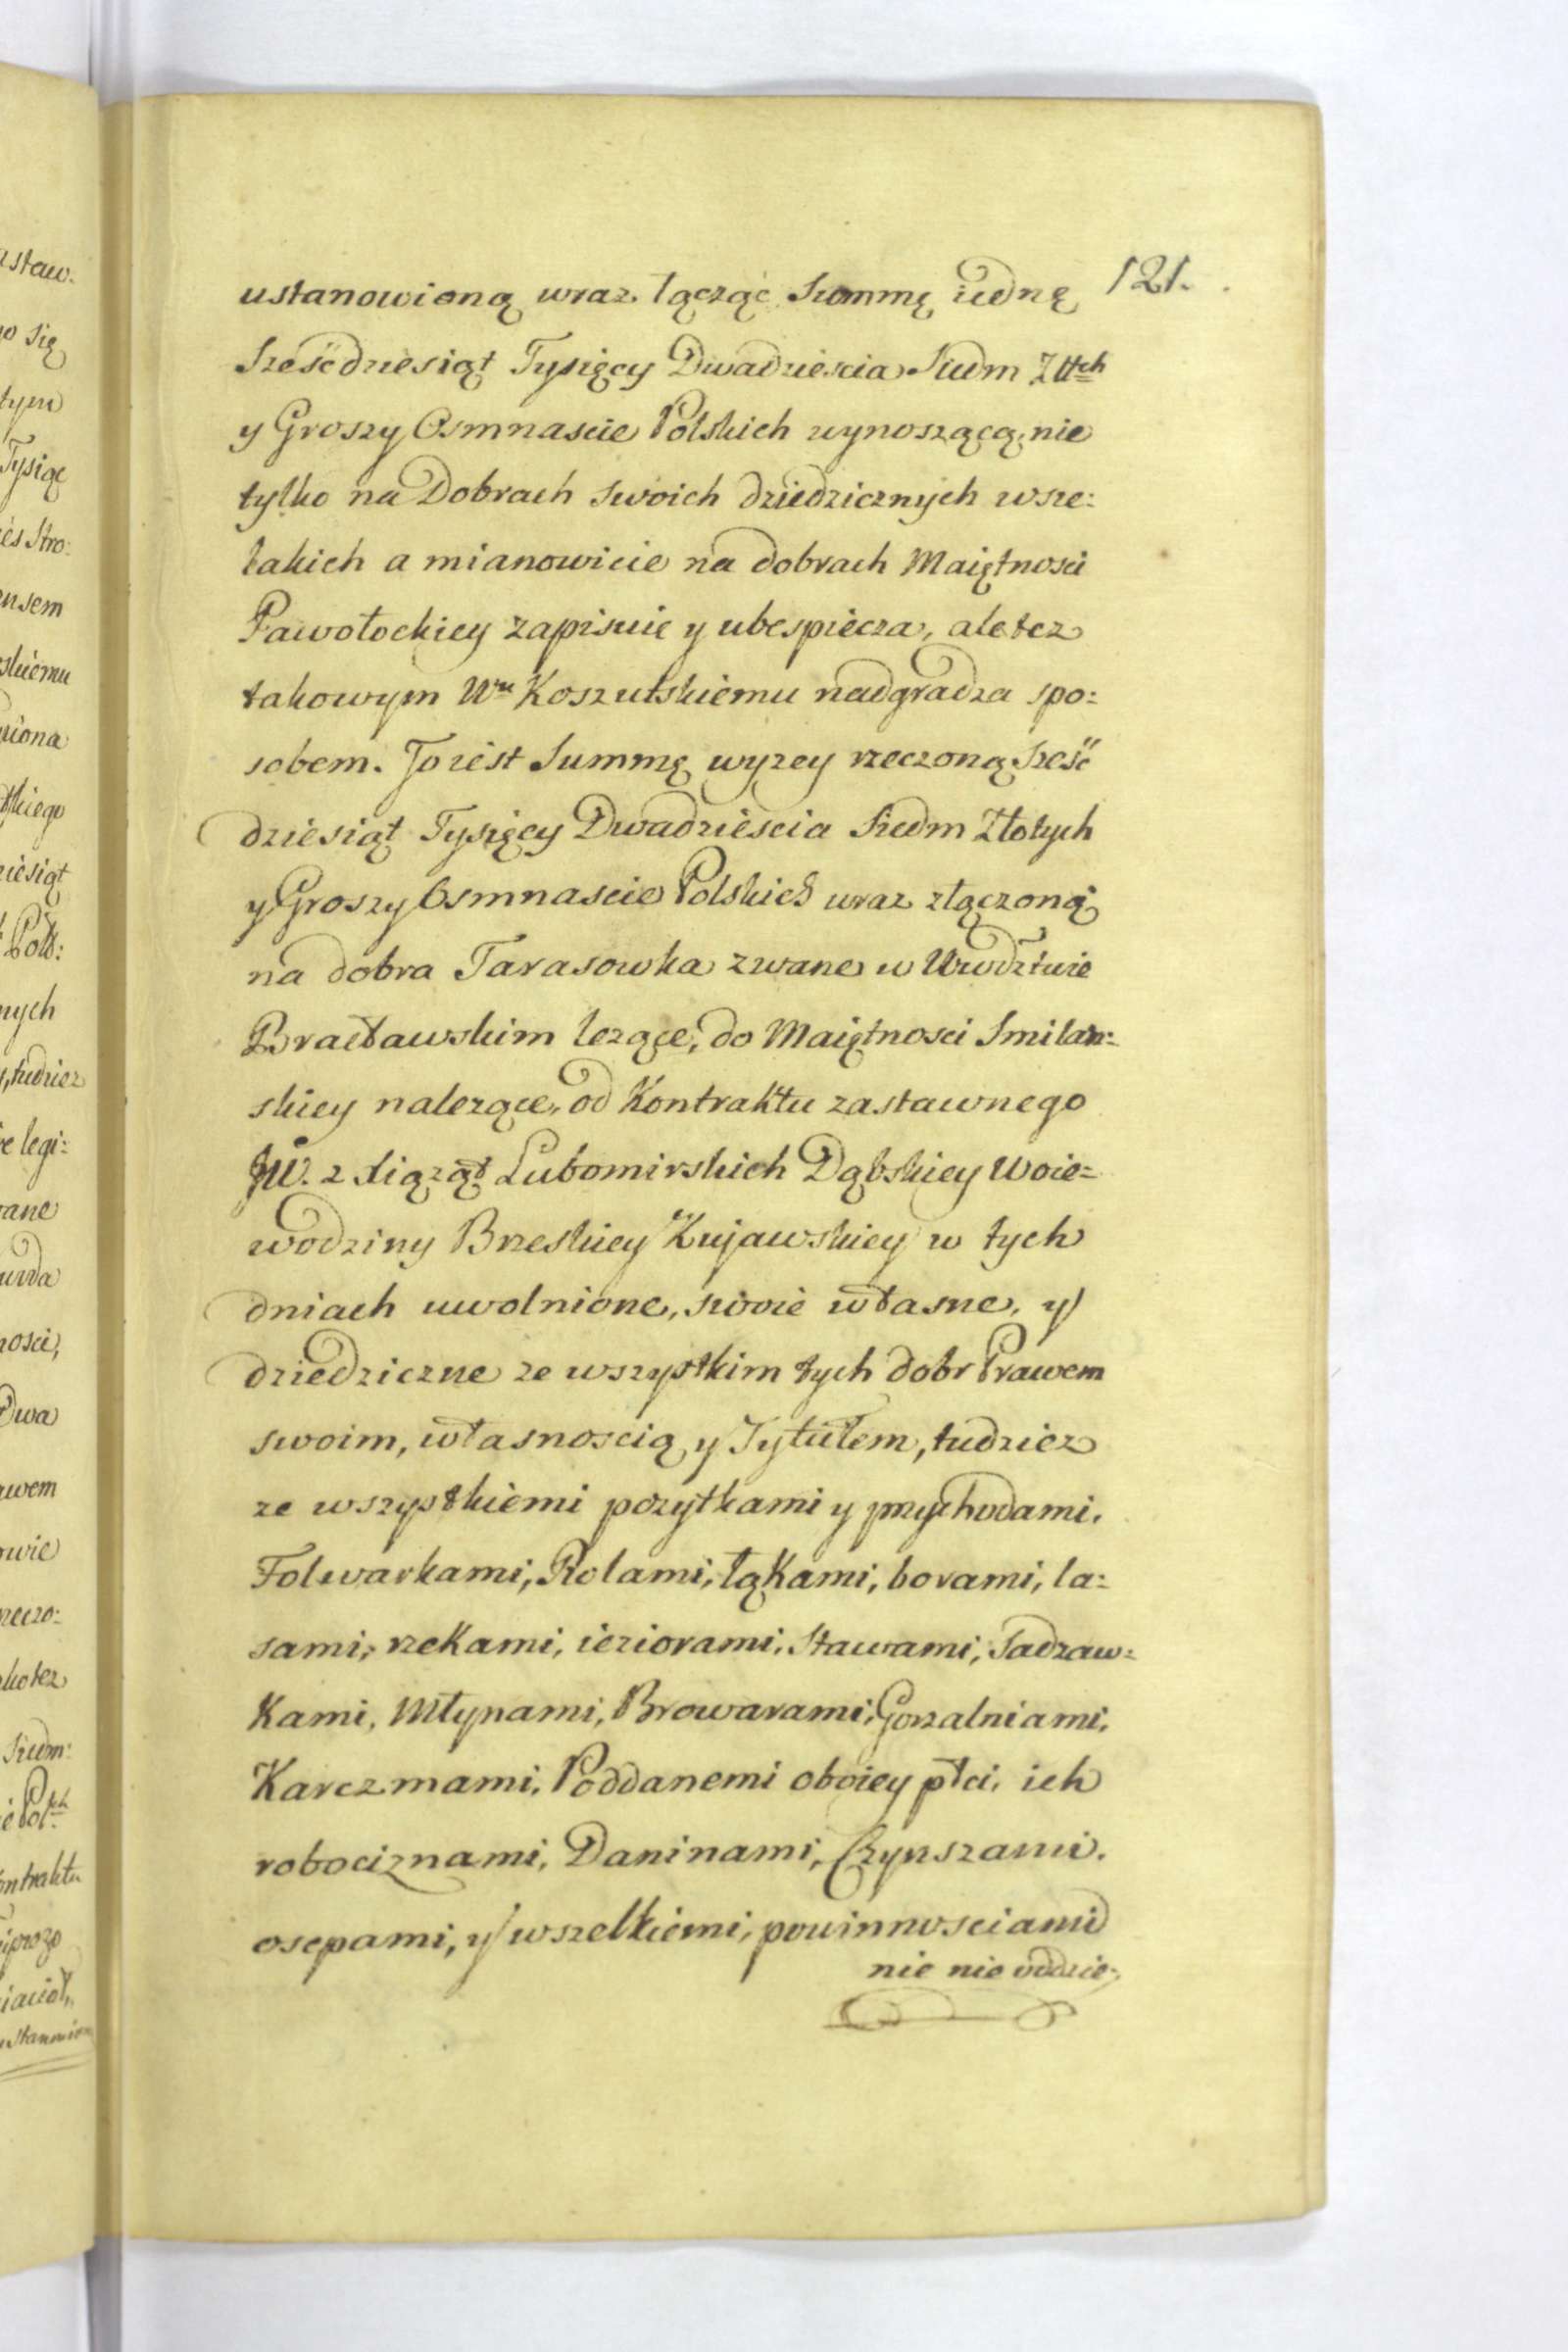 121.
ustanowioną wraz łącząc Summę iednę
Sześćdziesiąt Tysięcy Dwadziescia Siedm Złłch
y Groszy Osmnascie Polskich wynoszącą, nie
tylko na Dobrach swoich dziedzicznych wsze:
lakich a mianowicie na dobrach Maiętnosci
Pawołockiey zapisuie y ubespiecza, ale tez
takowym Wu Koszutskiemu nadgradza spo:
sobem. To iest Summę wyzey rzeczoną Sześć
dziesiąt Tysięcy Dwadziescia Siedm Złotych
y Groszy Osmnascie Polskich wraz złączoną
na dobra Tarasowka zwane w Wwdztwie
Bracławskim lezące, do Maiętnosci Smilan:
skiey nalezące, od Kontraktu zastawnego
JW. z Xiąząt Lubomirskich Dąbskiey Woie=
wodziny Brzeskiey Kujawskiey w tych
dniach uwolnione, swoie własne, y
dziedziczne ze wszystkim tych dobr Prawem
swoim, własnoscią y Tytułem, tudziez
ze wszystkiemi pozytkami y przychodami,
Folwarkami, Rolami, łąkami, borami, la:
sami, rzekami, ieziorami, Stawami, Sadzaw:
kami, Młynami, Browarami, Gorzalniami,
Karczmami, Poddanemi oboiey płci, ich
robociznami, Daninami, Czynszami,
osepami, y wszelkiemi, powinnosciami
nie nie oddzie:
astaw.
o się
tym
Tysiąc
ensem
skiemu
niona
ziesiąt
nych
, tudziez
e legi:
nosci,
Dwa
awem